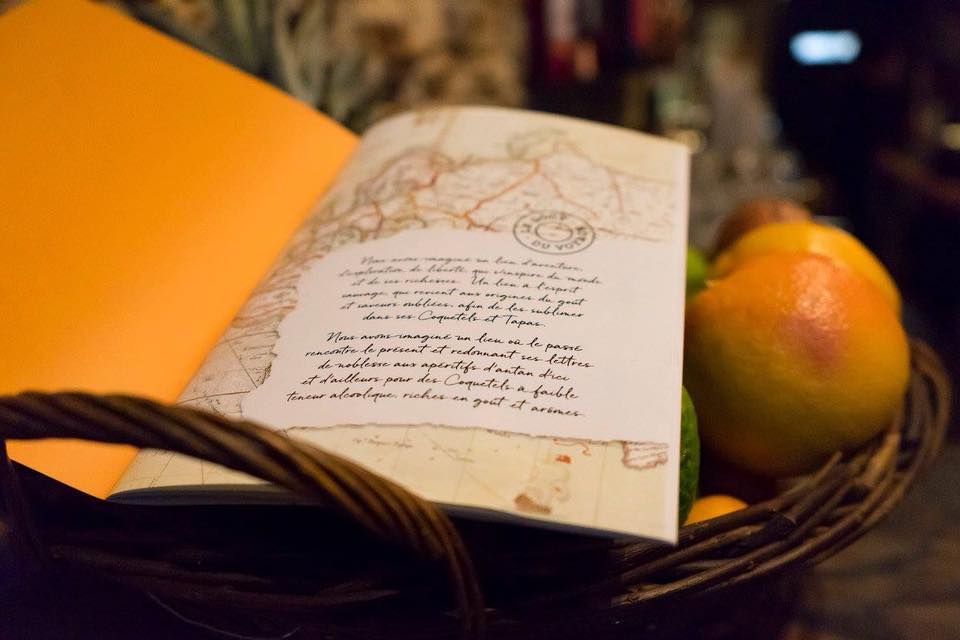 DU VOLA
Nous avons imaginé un lieu d'aventure,
d'exploration de liberté, qui s'inspire du monde
et de ses richesses. Un lieu à l'esprit
sauvage, qui revient aux origines du goût
et saveurs oubliées, afin de les sublimer
dans ses Coquetels et Tapas.
Nous avons imaginé un lieu où le passé
rencontre le présent et redonnant ses lettres
de noblesse aux apéritifs d'antan d'ici
et d'ailleurs pour des Coquetels à faible
teneur alcoolique, riches en goût et arômes.